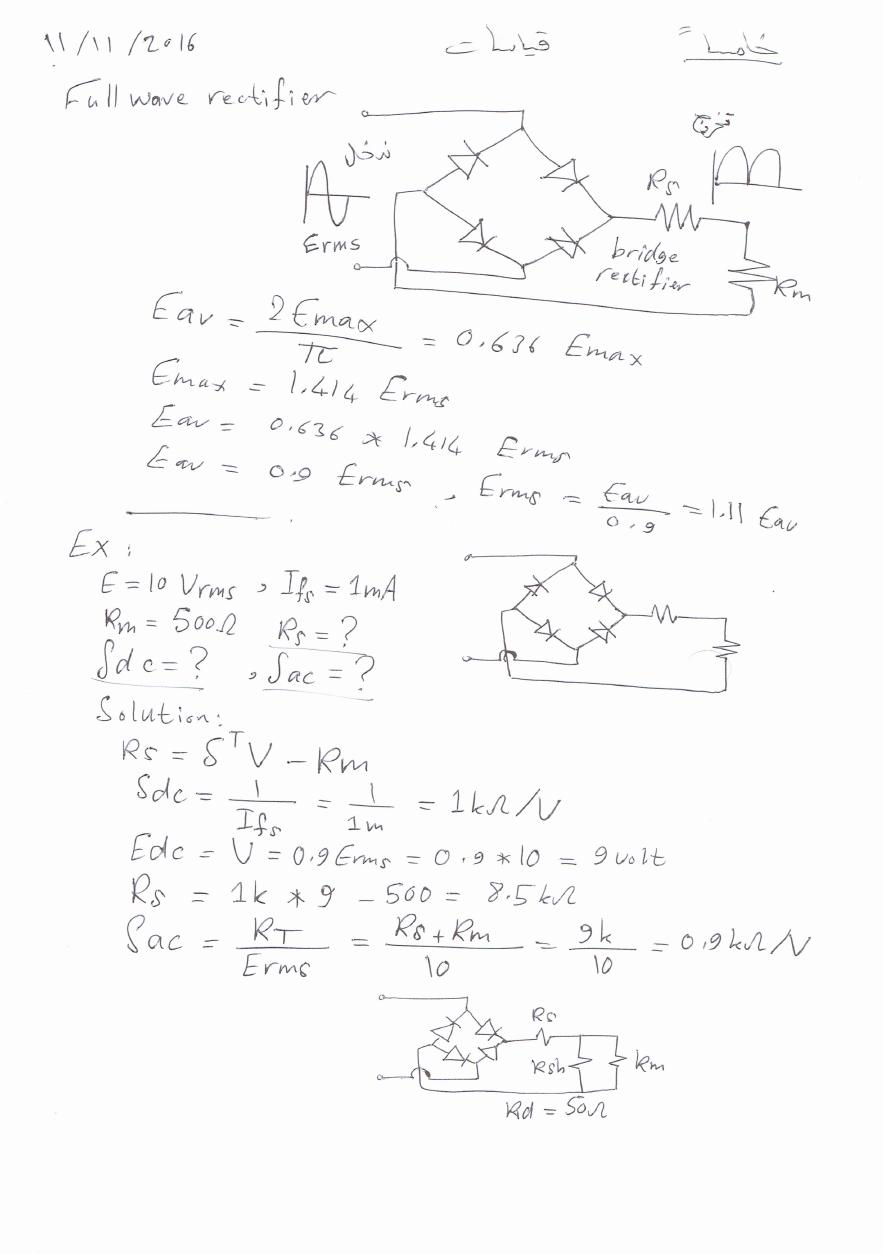 11/11/2016 قياسات خامسا
Full wave rectifier
ندخل
نخرج
Erms
Rs
bridge
rectifier
Rm
Eav = 2Emax / π = 0.636 Emax
Emax = 1.414 Erms
Eav = 0.636 * 1.414 Erms
Eav = 0.9 Erms, Erms = Eav / 0.9 = 1.11 Eav
Ex:
E = 10 Vrms, Ifs = 1mA
Rm = 500Ω Rs = ?
Sdc = ?, Sac = ?
Solution:
Rs = S^T V - Rm
Sdc = 1 / Ifs = 1 / 1m = 1kΩ/V
Edc = V = 0.9 Erms = 0.9 * 10 = 9 volt
Rs = 1k * 9 - 500 = 8.5 kΩ
Sac = RT / Erms = Rs + Rm / 10 = 9k / 10 = 0.9kΩ/V
Rs
Rsh
Rm
Rd = 50Ω